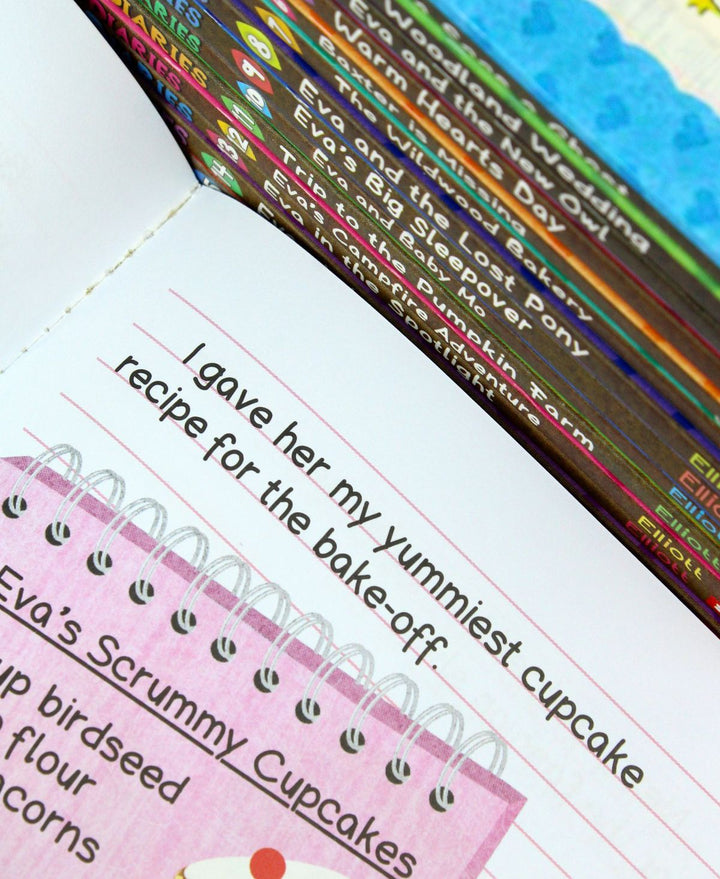 DIARIES
DIARIES
DIARIES
DIARIES
Woodland Wedding
Eva and the New Owl
Warm Hearts Day
Baxter is Missing
The Wildwood Bakery
Eva and the Lost Pony
Eva's Big Sleepover
Eva and Baby Mo
Trip to the Pumpkin Farm
Eva's Campfire Adventure
Eva in the Spotlight
Elliott
Elliott
Elliott
I gave her my yummiest cupcake
recipe for the bake-off.
Eva's Scrummy Cupcakes
up birdseed
flour
acorns